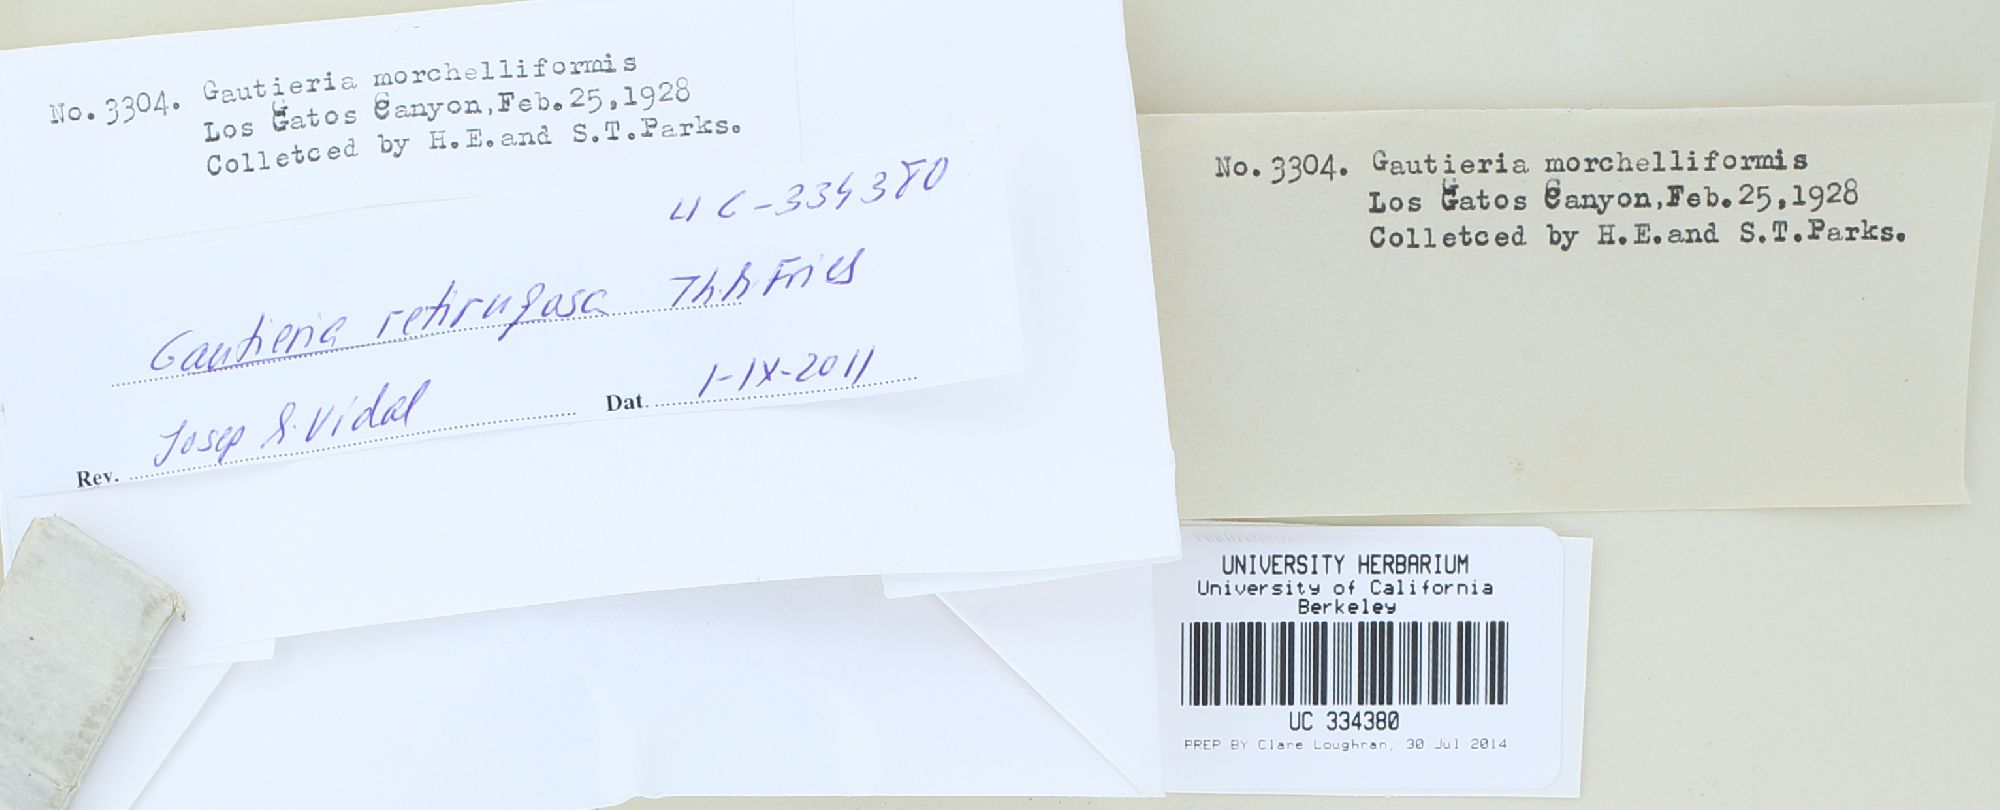 No. 3304. Gautieria morchelliformis
Los Gatos Canyon, Feb. 25, 1928
Colletced by H.E. and S.T. Parks.
UC-334380
Gautieria retirugosa Th.
Fries
Rev. Josep S. Vidal Dat. 1-IX-2011
No. 3304. Gautieria morchelliformis
Los Gatos Canyon, Feb. 25, 1928
Colletced by H.E. and S.T. Parks.
UNIVERSITY HERBARIUM
University of California
Berkeley
UC 334380
PREP BY Clare Loughran, 30 Jul 2014